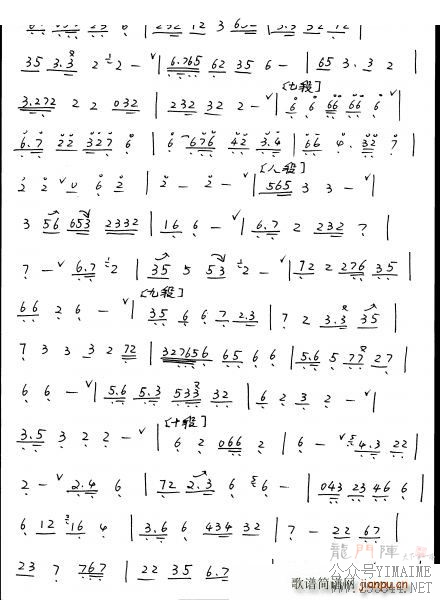 35 3.3 2 2 - | 6.765 62 35 6 - | 65 3.3 2
[七段]
3.272 2 2 032 | 232 32 2 - | 6 6 66 66 6
6.7 22 327 6 | 6 676 42 3.4 | 66 4. 32 7 |
[八段]
2 2 0 6 2 | 2 - 2 - | 565 3 3 - |
3 56 653 2332 | 16 6 - | 6.7 2 232 7 |
7 - 6.7 2 | 35 5 53 2 - | 72 2 276 35 |
[九段]
66 2 6 - | 35 6 6 7 2.3 | 7 2 3.3 35 |
7 3 3 3 2 72 | 327656 65 6 6 | 5.6 5 77 27 |
6 6 - | 5.6 5.3 533 32 | 6 2 3 2 - |
[十段]
3.5 3 2 2 - | 6 2 066 2 | 6 - 4.3 22 |
2 - 2.4 6 | 72 2.3 6 6 - | 043 23 46 6 |
6 12 16 4 | 3.6 6 434 32 | 7 - 22 67 |
龍門陣
公众号YIMAIME
23 7 767 | 22 35 6.7
歌谱简谱网
jianpu.cn